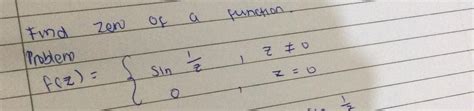 Find zero of a function.
Problem
f(z) = { sin 1/z , z ≠ 0
0 , z = 0